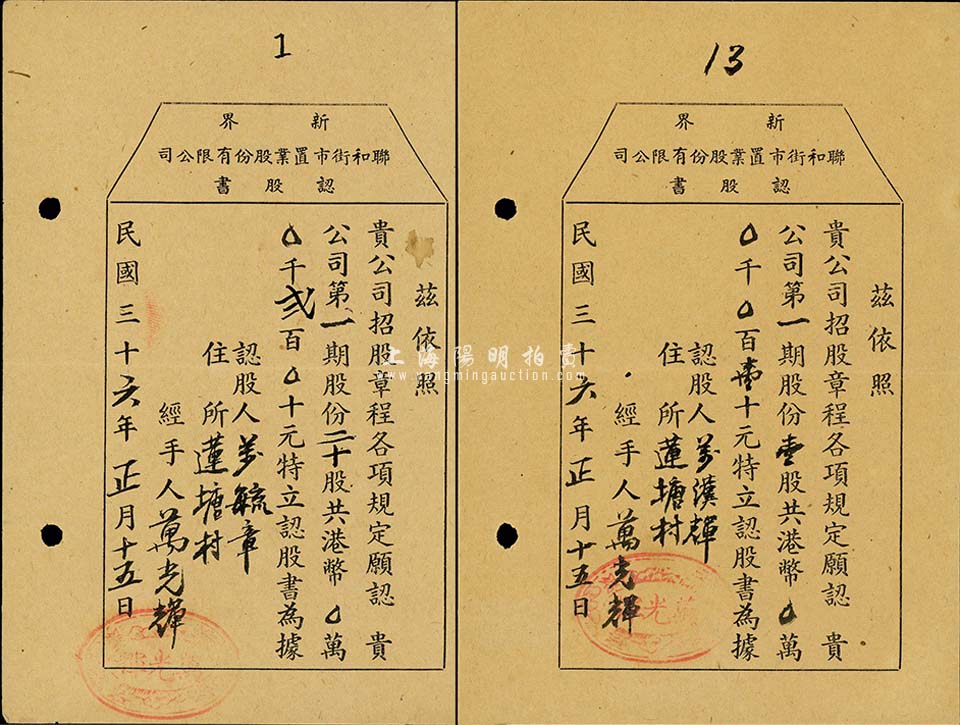 1
新界
聯和街市置業股份有限公司
認股書
茲依照
貴公司招股章程各項規定願認　貴
公司第一期股份二十股共港幣〇萬
〇千弍百〇十元特立認股書為據
認股人萬毓章
住所蓮塘村
經手人萬光輝
民國三十六年正月十五日
13
新界
聯和街市置業股份有限公司
認股書
茲依照
貴公司招股章程各項規定願認　貴
公司第一期股份壹股共港幣〇萬
〇千〇百壹十元特立認股書為據
認股人萬漢輝
住所蓮塘村
經手人萬光輝
民國三十六年正月十五日
上海陽明拍賣
www.yangmingauction.com